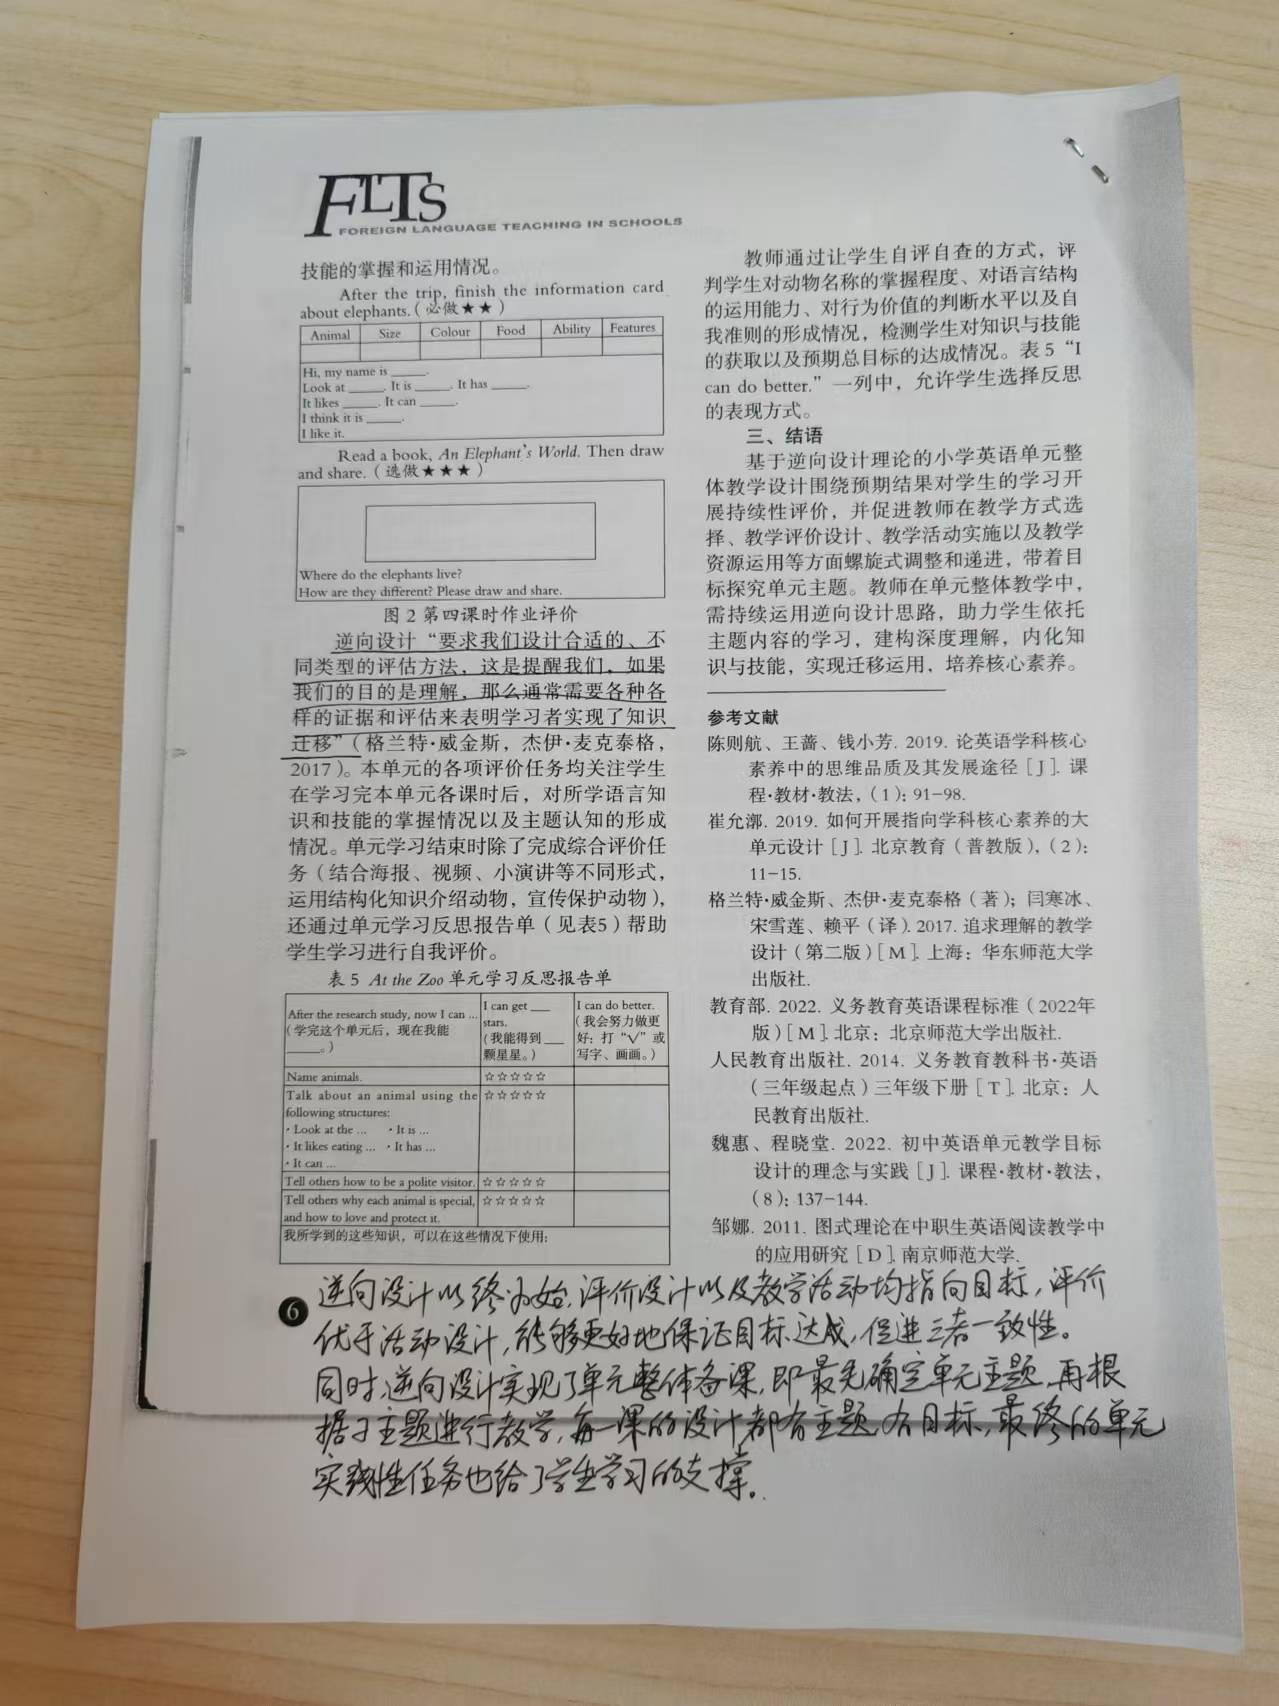 FLTS
FOREIGN LANGUAGE TEACHING IN SCHOOLS
技能的掌握和运用情况。
After the trip, finish the information card
about elephants.（必做★★）
Animal Size Colour Food Ability Features
Hi, my name is _____.
Look at _____. It is _____. It has _____.
It likes _____. It can _____.
I think it is _____.
I like it.
Read a book, An Elephant's World. Then draw
and share.（选做★★★）
Where do the elephants live?
How are they different? Please draw and share.
图 2 第四课时作业评价
逆向设计“要求我们设计合适的、不
同类型的评估方法，这是提醒我们，如果
我们的目的是理解，那么通常需要各种各
样的证据和评估来表明学习者实现了知识
迁移”（格兰特·威金斯，杰伊·麦克泰格，
2017）。本单元的各项评价任务均关注学生
在学习完本单元各课时后，对所学语言知
识和技能的掌握情况以及主题认知的形成
情况。单元学习结束时除了完成综合评价任
务（结合海报、视频、小演讲等不同形式，
运用结构化知识介绍动物，宣传保护动物），
还通过单元学习反思报告单（见表5）帮助
学生学习进行自我评价。
表 5 At the Zoo 单元学习反思报告单
After the research study, now I can ...
（学完这个单元后，现在我能
_____。）
I can get ___
stars.
（我能得到___
颗星星。）
I can do better.
（我会努力做更
好：打“√”或
写字、画画。）
Name animals. ☆☆☆☆☆
Talk about an animal using the ☆☆☆☆☆
following structures:
· Look at the ... · It is ...
· It likes eating ... · It has ...
· It can ...
Tell others how to be a polite visitor. ☆☆☆☆☆
Tell others why each animal is special, ☆☆☆☆☆
and how to love and protect it.
我所学到的这些知识，可以在这些情况下使用：
教师通过让学生自评自查的方式，评
判学生对动物名称的掌握程度、对语言结构
的运用能力、对行为价值的判断水平以及自
我准则的形成情况，检测学生对知识与技能
的获取以及预期总目标的达成情况。表 5“I
can do better.”一列中，允许学生选择反思
的表现方式。
三、结语
基于逆向设计理论的小学英语单元整
体教学设计围绕预期结果对学生的学习开
展持续性评价，并促进教师在教学方式选
择、教学评价设计、教学活动实施以及教学
资源运用等方面螺旋式调整和递进，带着目
标探究单元主题。教师在单元整体教学中，
需持续运用逆向设计思路，助力学生依托
主题内容的学习，建构深度理解，内化知
识与技能，实现迁移运用，培养核心素养。
参考文献
陈则航、王蔷、钱小芳. 2019. 论英语学科核心
素养中的思维品质及其发展途径［J］. 课
程·教材·教法，（1）：91-98.
崔允漷. 2019. 如何开展指向学科核心素养的大
单元设计［J］. 北京教育（普教版），（2）：
11-15.
格兰特·威金斯、杰伊·麦克泰格（著）；闫寒冰、
宋雪莲、赖平（译）. 2017. 追求理解的教学
设计（第二版）［M］. 上海：华东师范大学
出版社.
教育部. 2022. 义务教育英语课程标准（2022年
版）［M］. 北京：北京师范大学出版社.
人民教育出版社. 2014. 义务教育教科书·英语
（三年级起点）三年级下册［T］. 北京：人
民教育出版社.
魏惠、程晓堂. 2022. 初中英语单元教学目标
设计的理念与实践［J］. 课程·教材·教法，
（8）：137-144.
邹娜. 2011. 图式理论在中职生英语阅读教学中
的应用研究［D］. 南京师范大学.
6
逆向设计以终为始，评价设计以及教学活动均指向目标，评价
优于活动设计，能够更好地保证目标达成，促进三者一致性。
同时，逆向设计实现了单元整体备课，即最先确定单元主题，再根
据子主题进行教学，每一课的设计都有主题，有目标，最终的单元
实践性任务也给了学生学习的支撑。